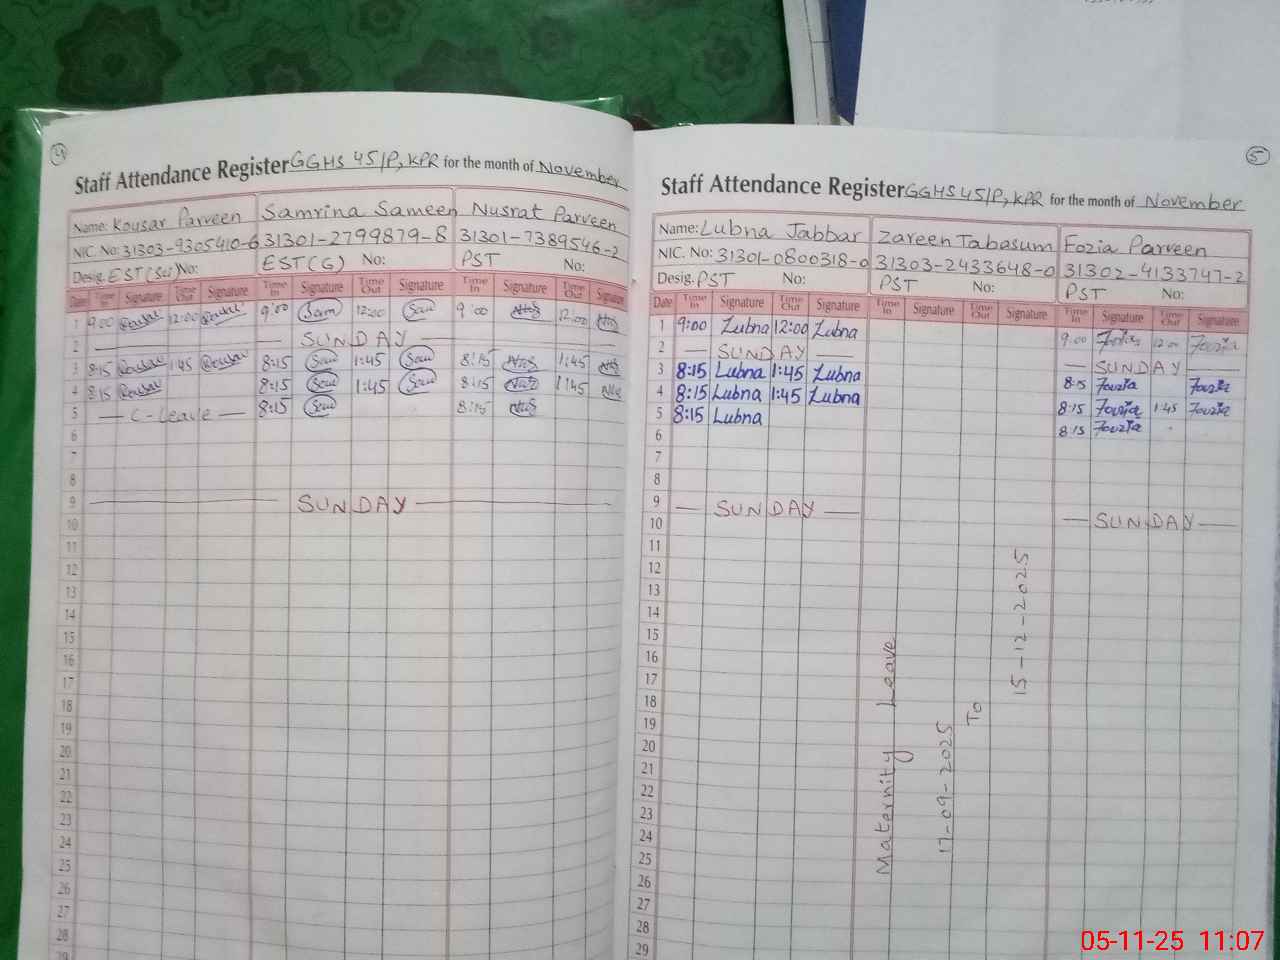 4
Staff Attendance Register GGHS 45/P, KPR for the month of November
Name: Kousar Parveen Samrina Sameen Nusrat Parveen
NIC. No: 31303-9305410-6 31301-2799879-8 31301-7389546-2
Desig. EST(Sci) No: EST(G) No: PST No:
Date Time In Signature Time Out Signature Time In Signature Time Out Signature Time In Signature Time Out Signature
1 9:00 Kousar 12:00 Kousar 9:00 Sam 12:00 9:00 12:00
2 SUNDAY
3 8:15 Kousar 1:45 Kousar 8:15 1:45 8:15 1:45
4 8:15 Kousar 8:15 1:45 8:15 1:45
5 C-Leave 8:15 8:15
6
7
8
9 SUNDAY
10
11
12
13
14
15
16
17
18
19
20
21
22
23
24
25
26
27
28
29
5
Staff Attendance Register GGHS 45/P, KPR for the month of November
Name: Lubna Jabbar Zareen Tabasum Fozia Parveen
NIC. No: 31301-0800318-0 31303-2433648-0 31302-4133747-2
Desig. PST PST No: PST No:
Date Time In Signature Time Out Signature Time In Signature Time Out Signature Time In Signature Time Out Signature
1 9:00 Lubna 12:00 Lubna 9:00 Fouzia 12:00 Fouzia
2 SUNDAY SUNDAY
3 8:15 Lubna 1:45 Lubna 8:15 Fouzia Fouzia
4 8:15 Lubna 1:45 Lubna 8:15 Fouzia 1:45 Fouzia
5 8:15 Lubna 8:15 Fouzia
6
7
8
9 SUNDAY SUNDAY
10
11
12
13
14
15
16
17
18
19
20
21
22
23
24
25
26
27
28
29
Maternity Leave
17-09-2025
To
15-12-2025
05-11-25 11:07